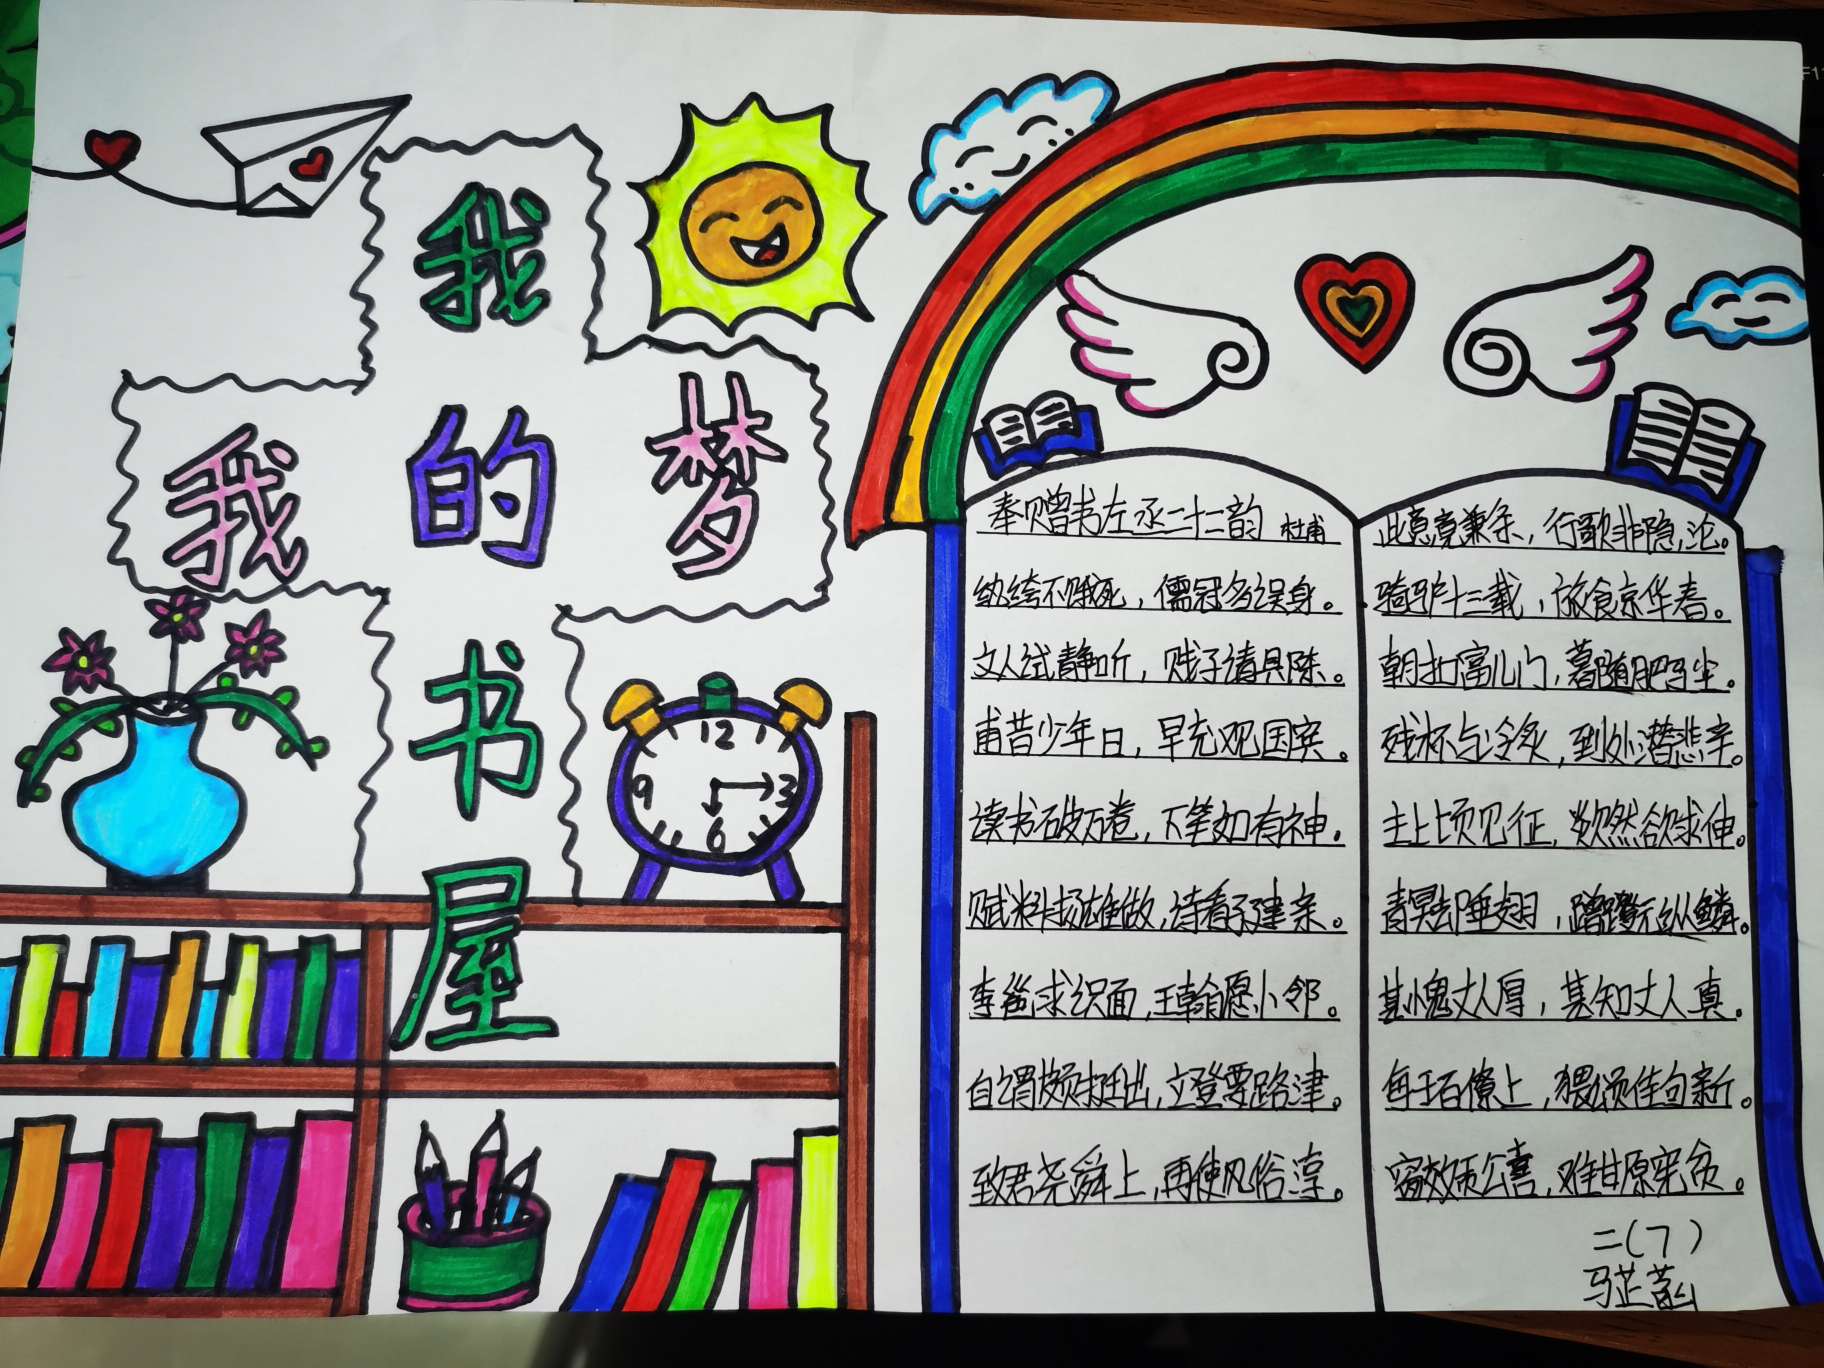 我
我的梦
书
屋
12
9 3
6
奉赠韦左丞二十二韵 杜甫
纨绔不饿死，儒冠多误身。
文人试静听，贱子请具陈。
甫昔少年日，早充观国宾。
读书破万卷，下笔如有神。
赋料扬雄做，诗看子建亲。
李邕求识面，王翰愿小邻。
自谓颇挺出，立登要路津。
致君尧舜上，再使风俗淳。
此意竟兼余，行歌非隐沦。
骑驴十三载，旅食京华春。
朝扣富儿门，暮随肥马尘。
残杯与冷炙，到处潜悲辛。
主上顷见征，欻然欲求伸。
青冥却垂翅，蹭蹬无纵鳞。
甚愧丈人厚，甚知丈人真。
每于百僚上，猥颂佳句新。
窃效贡公喜，难甘原宪贫。
二(7)
马芷